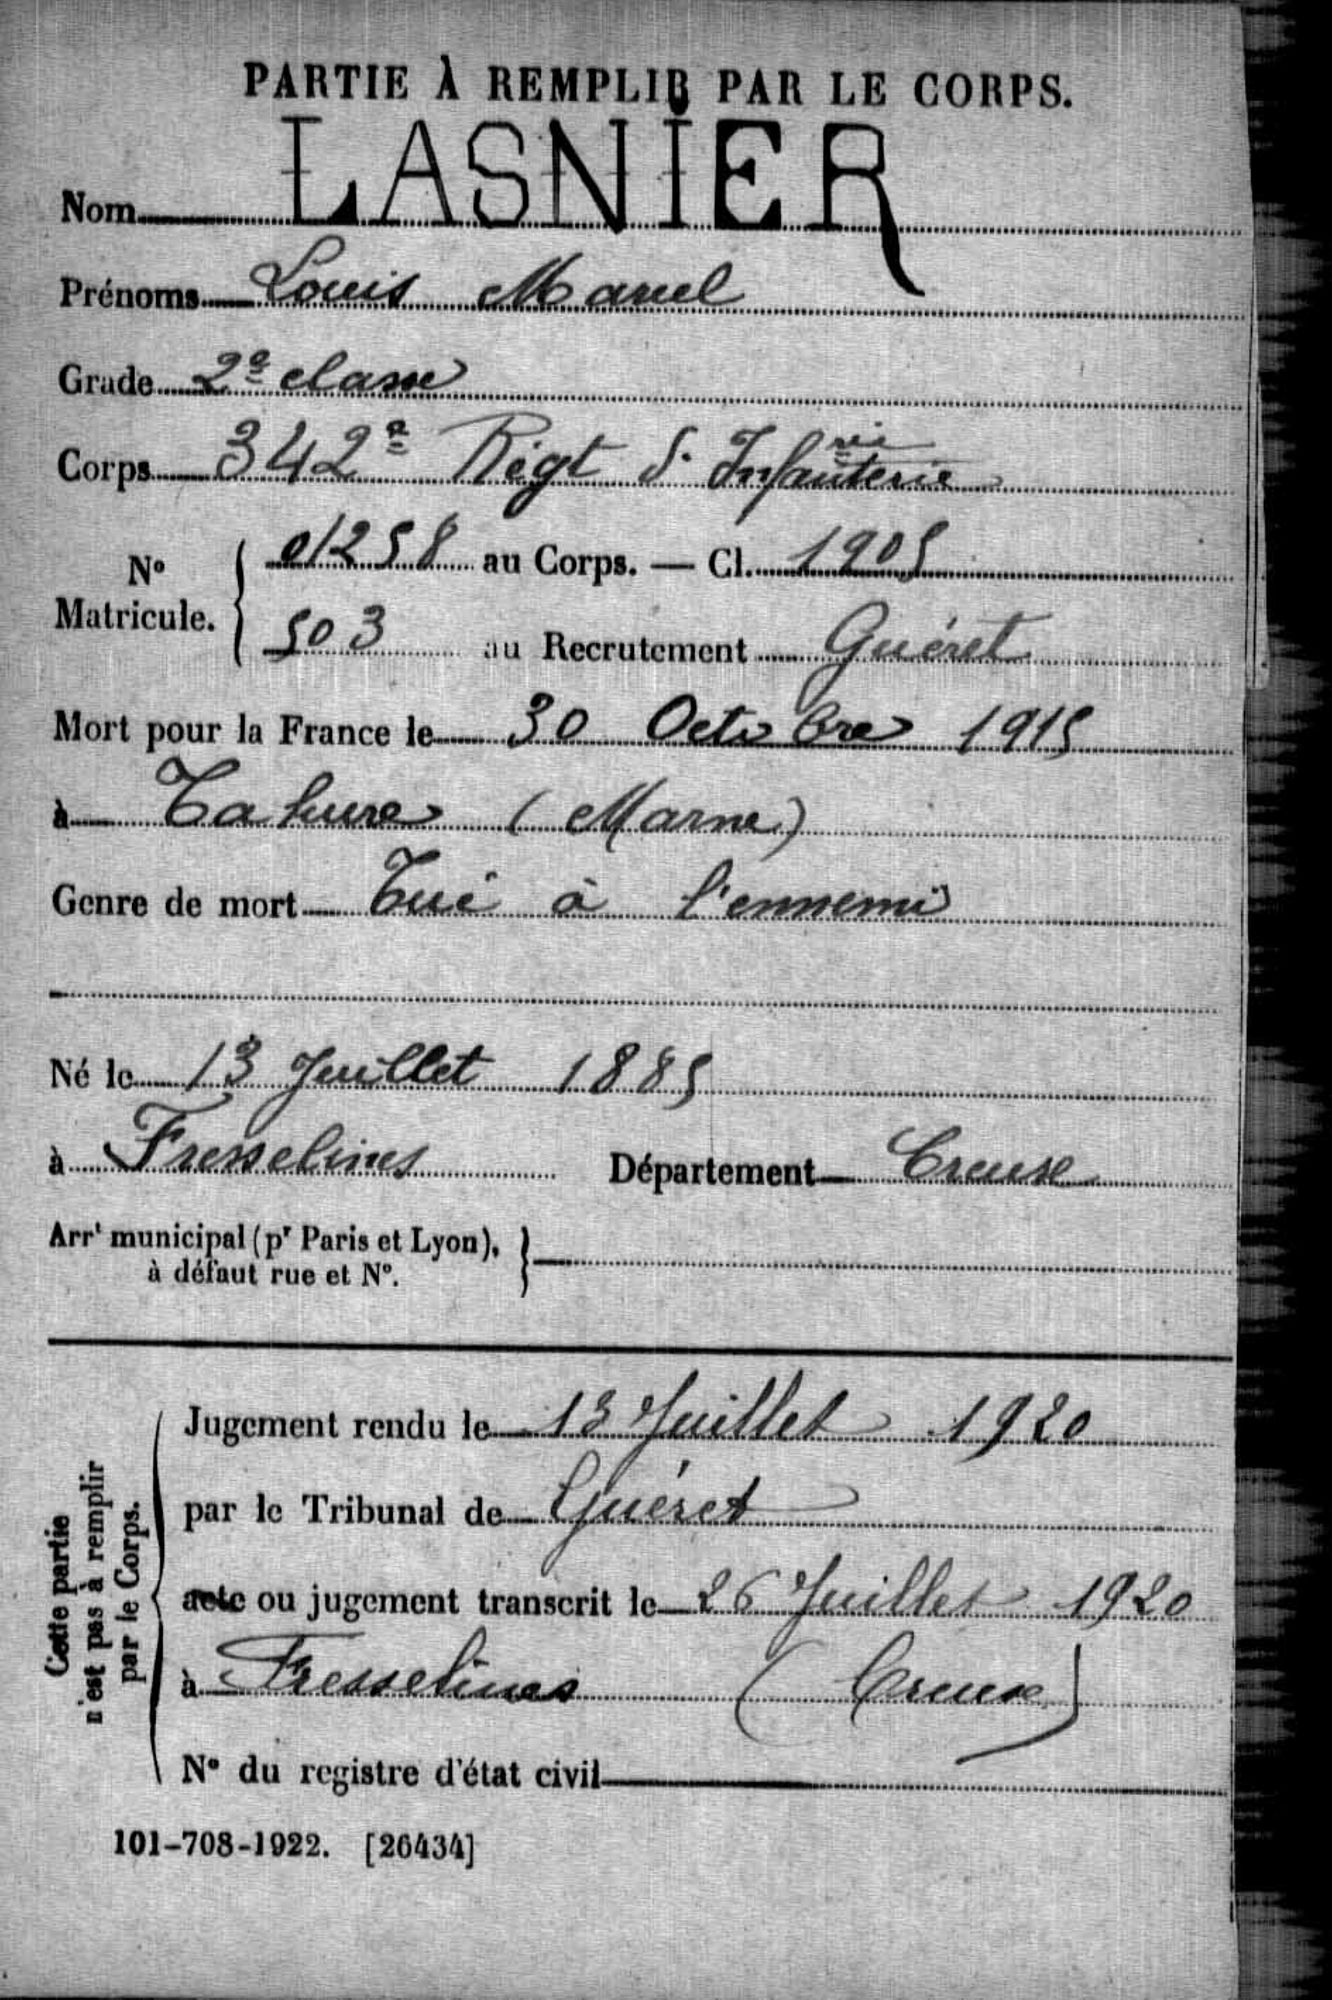 PARTIE À REMPLIR PAR LE CORPS.
Nom LASNIER
Prénoms Louis Marcel
Grade 2e classe
Corps 342e Régt d'Infanterie
No Matricule. { 01258 au Corps. — Cl. 1905
503 au Recrutement Guéret
Mort pour la France le 30 Octobre 1915
à Tahure (Marne)
Genre de mort Tué à l'ennemi
Né le 13 Juillet 1885
à Fresselines Département Creuse
Arrt municipal (pr Paris et Lyon), }
à défaut rue et No.
Cette partie
n'est pas à remplir
par le Corps.
Jugement rendu le 13 Juillet 1920
par le Tribunal de Guéret
acte ou jugement transcrit le 26 Juillet 1920
à Fresselines (Creuse)
No du registre d'état civil
101-708-1922. [26434]